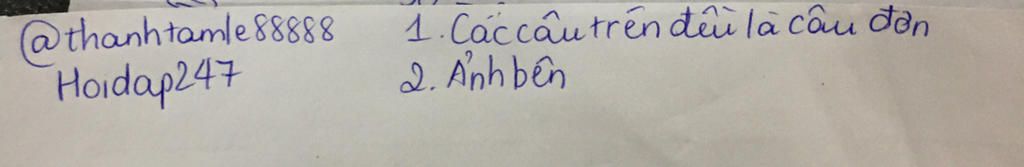 @thanhtamle88888
Hoidap247
1. Các câu trên đều là câu đơn
2. Ảnh bên